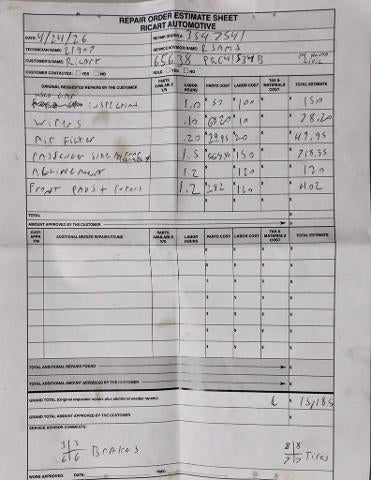 REPAIR ORDER ESTIMATE SHEET
RICART AUTOMOTIVE
DATE: 4/24/26 REPAIR ORDER #: 3547541
TECHNICIAN NAME: SERVICE ADVISOR NAME: R SAMS
CUSTOMER'S NAME: RICART 65638 PRC41534B
CUSTOMER CONTACTED: YES NO SOLD: YES NO
ORIGINAL REQUESTED REPAIRS BY THE CUSTOMER PARTS AVAILABLE Y/N LABOR HOURS PARTS COST LABOR COST TAX & MATERIALS COST TOTAL ESTIMATE
USED CAR INSPECTION 1.0 50 100 $ 150
WIPERS .10 10 $ 28.20
AIR FILTER .20 29.95 20 $ 49.95
PASSENGER SIDE 1.5 150 $ 718.35
ALIGNMENT 1.2 120 $ 120
FRONT PADS + ROTORS 1.2 282 120 $ 402
TOTAL $
AMOUNT APPROVED BY THE CUSTOMER $
CUST. APPR. Y/N ADDITIONAL NEEDED REPAIRS FOUND PARTS AVAILABLE Y/N LABOR HOURS PARTS COST LABOR COST TAX & MATERIALS COST TOTAL ESTIMATE
TOTAL ADDITIONAL REPAIRS FOUND $
TOTAL ADDITIONAL AMOUNT APPROVED BY THE CUSTOMER $
GRAND TOTAL (Original requested repairs plus additional needed repairs) $
GRAND TOTAL AMOUNT APPROVED BY THE CUSTOMER $
SERVICE ADVISOR COMMENTS:
3|3 8|8
6|6 BRAKES 7|7 TIRES
WORK APPROVED: DATE: TIME: